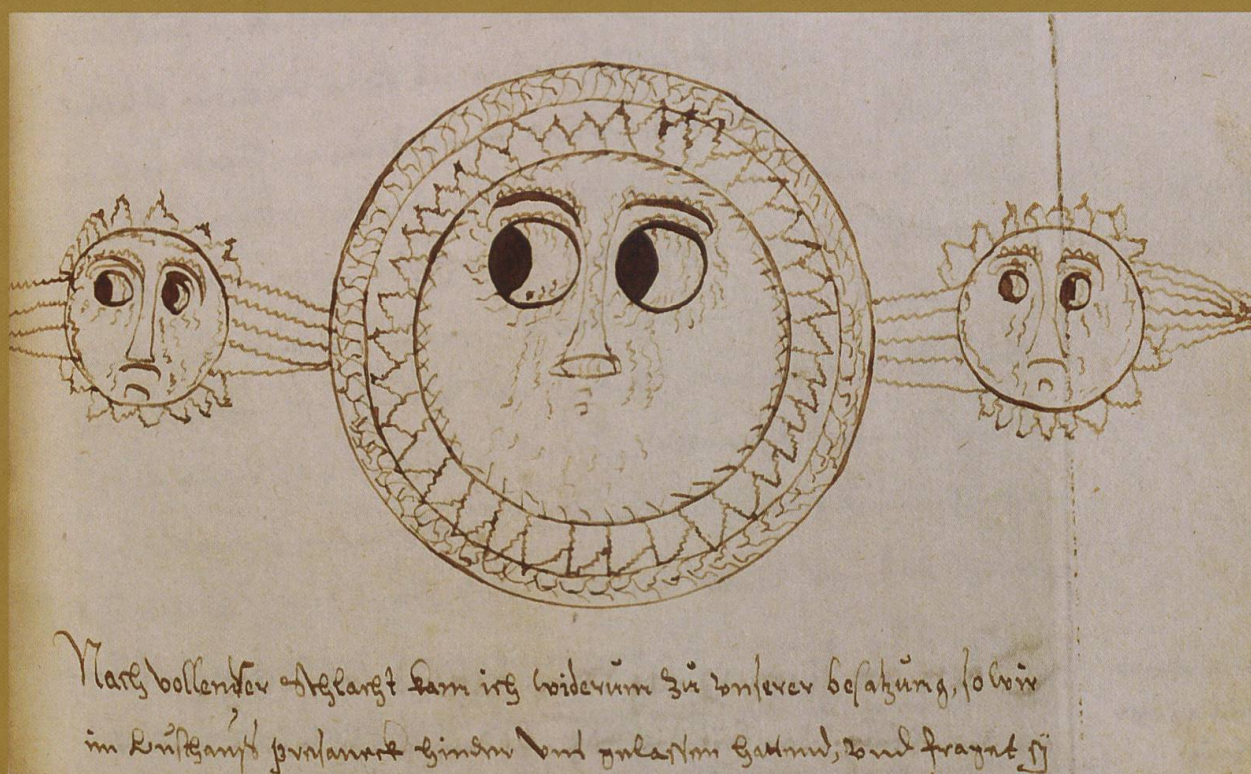 Nach vollendter Schlacht kam ich widerum zů unserer besatzung, so wir
im Lusthauß hinder uns gelassen hattend, und fraget sÿ